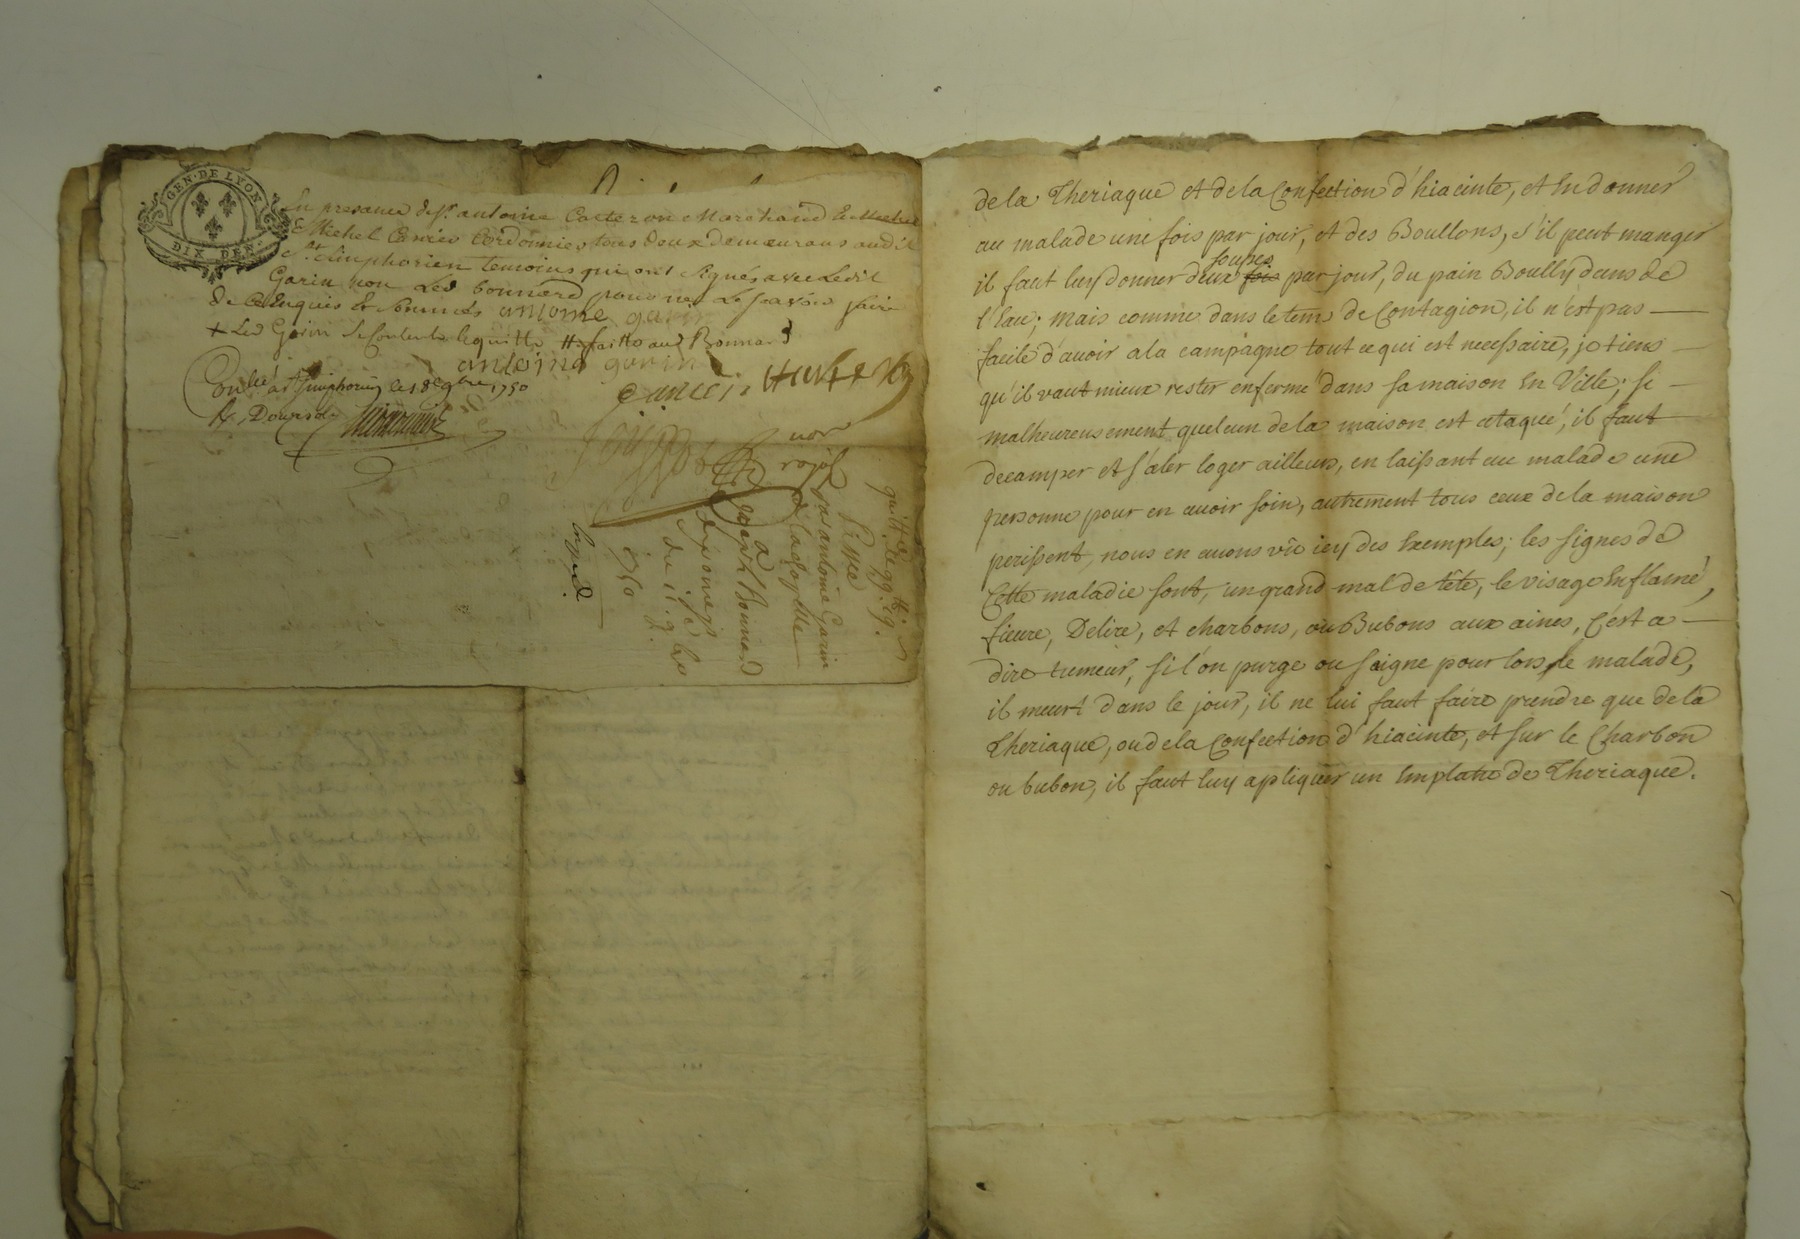 GEN. DE LYON
DIX DEN.
En presance de Sr. antoine Carteron Marchand
& Michel Cancés Cordonnier tous deux demeurans audit
St. Simphorien temoins qui ont signés avec Ledit
Garin non Led bonnard pour ne Le scavoir faire
de Ce Enquis Et sommés antoine garin
+ Led Garin
antoine garin
Cancés
Con.lé a St. Simphorien ce 18e 9bre 1750
R. Douze sols
quitt.ce
passé
par antoine Garin
a
Joseph Bonnard
du 11. 9bre
1750
de la Theriaque et de la Confection d'hiacinte, et En donner
au malade une fois par jour, et des Boullons, s'il peut manger
soupes
il faut luy donner deux fois par jour, du pain Boully dans de
l'Eau; mais comme dans le tems de Contagion, il n'est pas
facile d'avoir a la campagne tout ce qui est necessaire, je tiens
qu'il vaut mieux rester enfermé dans sa maison En Ville; si
malheureusement quelcun de la maison est ataqué, il faut
decamper et s'aler loger ailleurs, en laissant au malade une
personne pour en avoir soin, autrement tous ceux de la maison
perissent, nous en avons vû icy des Exemples; les signes de
Cette maladie sont, un grand mal de tête, le visage Enflamé,
fievre, Delire, et charbons, ou Bubons aux aines, C'est a
dire tumeur, si l'on purge ou saigne pour lors le malade,
il meurt dans le jour, il ne lui faut faire prendre que de la
Theriaque, ou de la Confection d'hiacinte, et sur le Charbon
ou bubon, il faut luy apliquer un Emplatre de Theriaque.